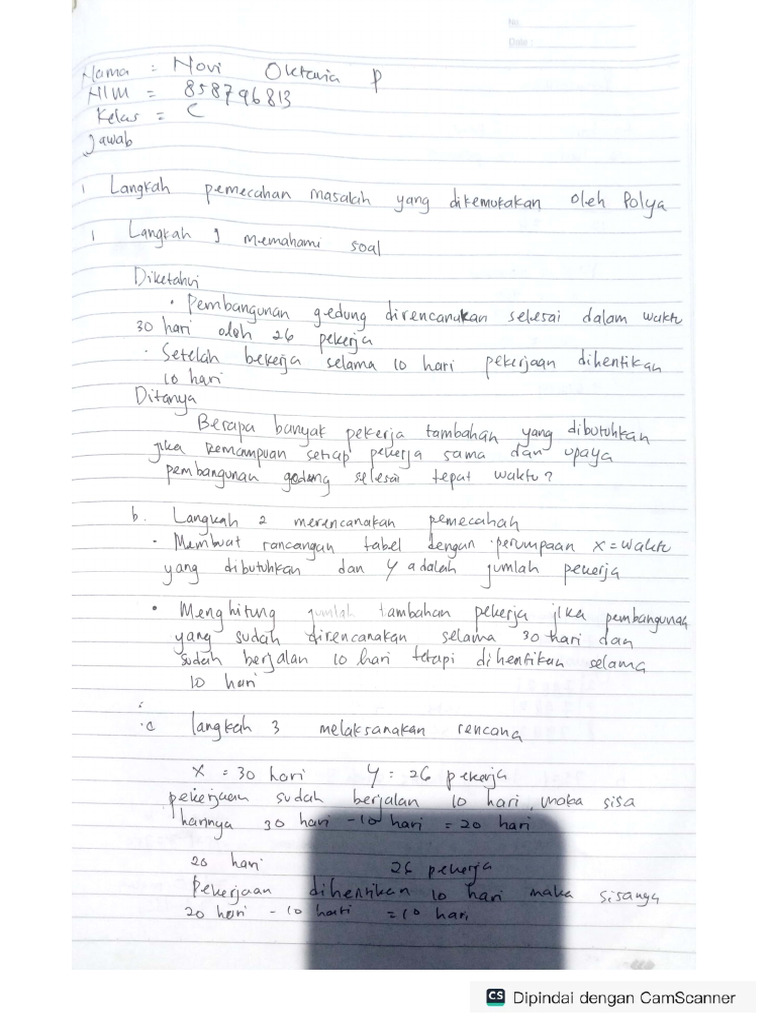 No.
Date :
Nama : Novi Oktavia P
NIM = 858796813
Kelas = C
Jawab
1 Langkah pemecahan masalah yang dikemukakan oleh Polya
1 Langkah 1 memahami soal
Diketahui
• Pembangunan gedung direncanakan selesai dalam waktu
30 hari oleh 26 pekerja
• Setelah bekerja selama 10 hari pekerjaan dihentikan
10 hari
Ditanya
Berapa banyak pekerja tambahan yang dibutuhkan
jika kemampuan setiap pekerja sama dan upaya
pembangunan gedung selesai tepat waktu?
b. Langkah 2 merencanakan pemecahan
• Membuat rancangan tabel dengan perumpaan x = waktu
yang dibutuhkan dan y adalah jumlah pekerja
• Menghitung jumlah tambahan pekerja jika pembangunan
yang sudah direncanakan selama 30 hari dan
sudah berjalan 10 hari tetapi dihentikan selama
10 hari
:
.c langkah 3 melaksanakan rencana
x = 30 hari y = 26 pekerja
pekerjaan sudah berjalan 10 hari, maka sisa
harinya 30 hari - 10 hari = 20 hari
20 hari 26 pekerja
Pekerjaan dihentikan 10 hari maka sisanya
20 hari - 10 hari = 10 hari
CS Dipindai dengan CamScanner